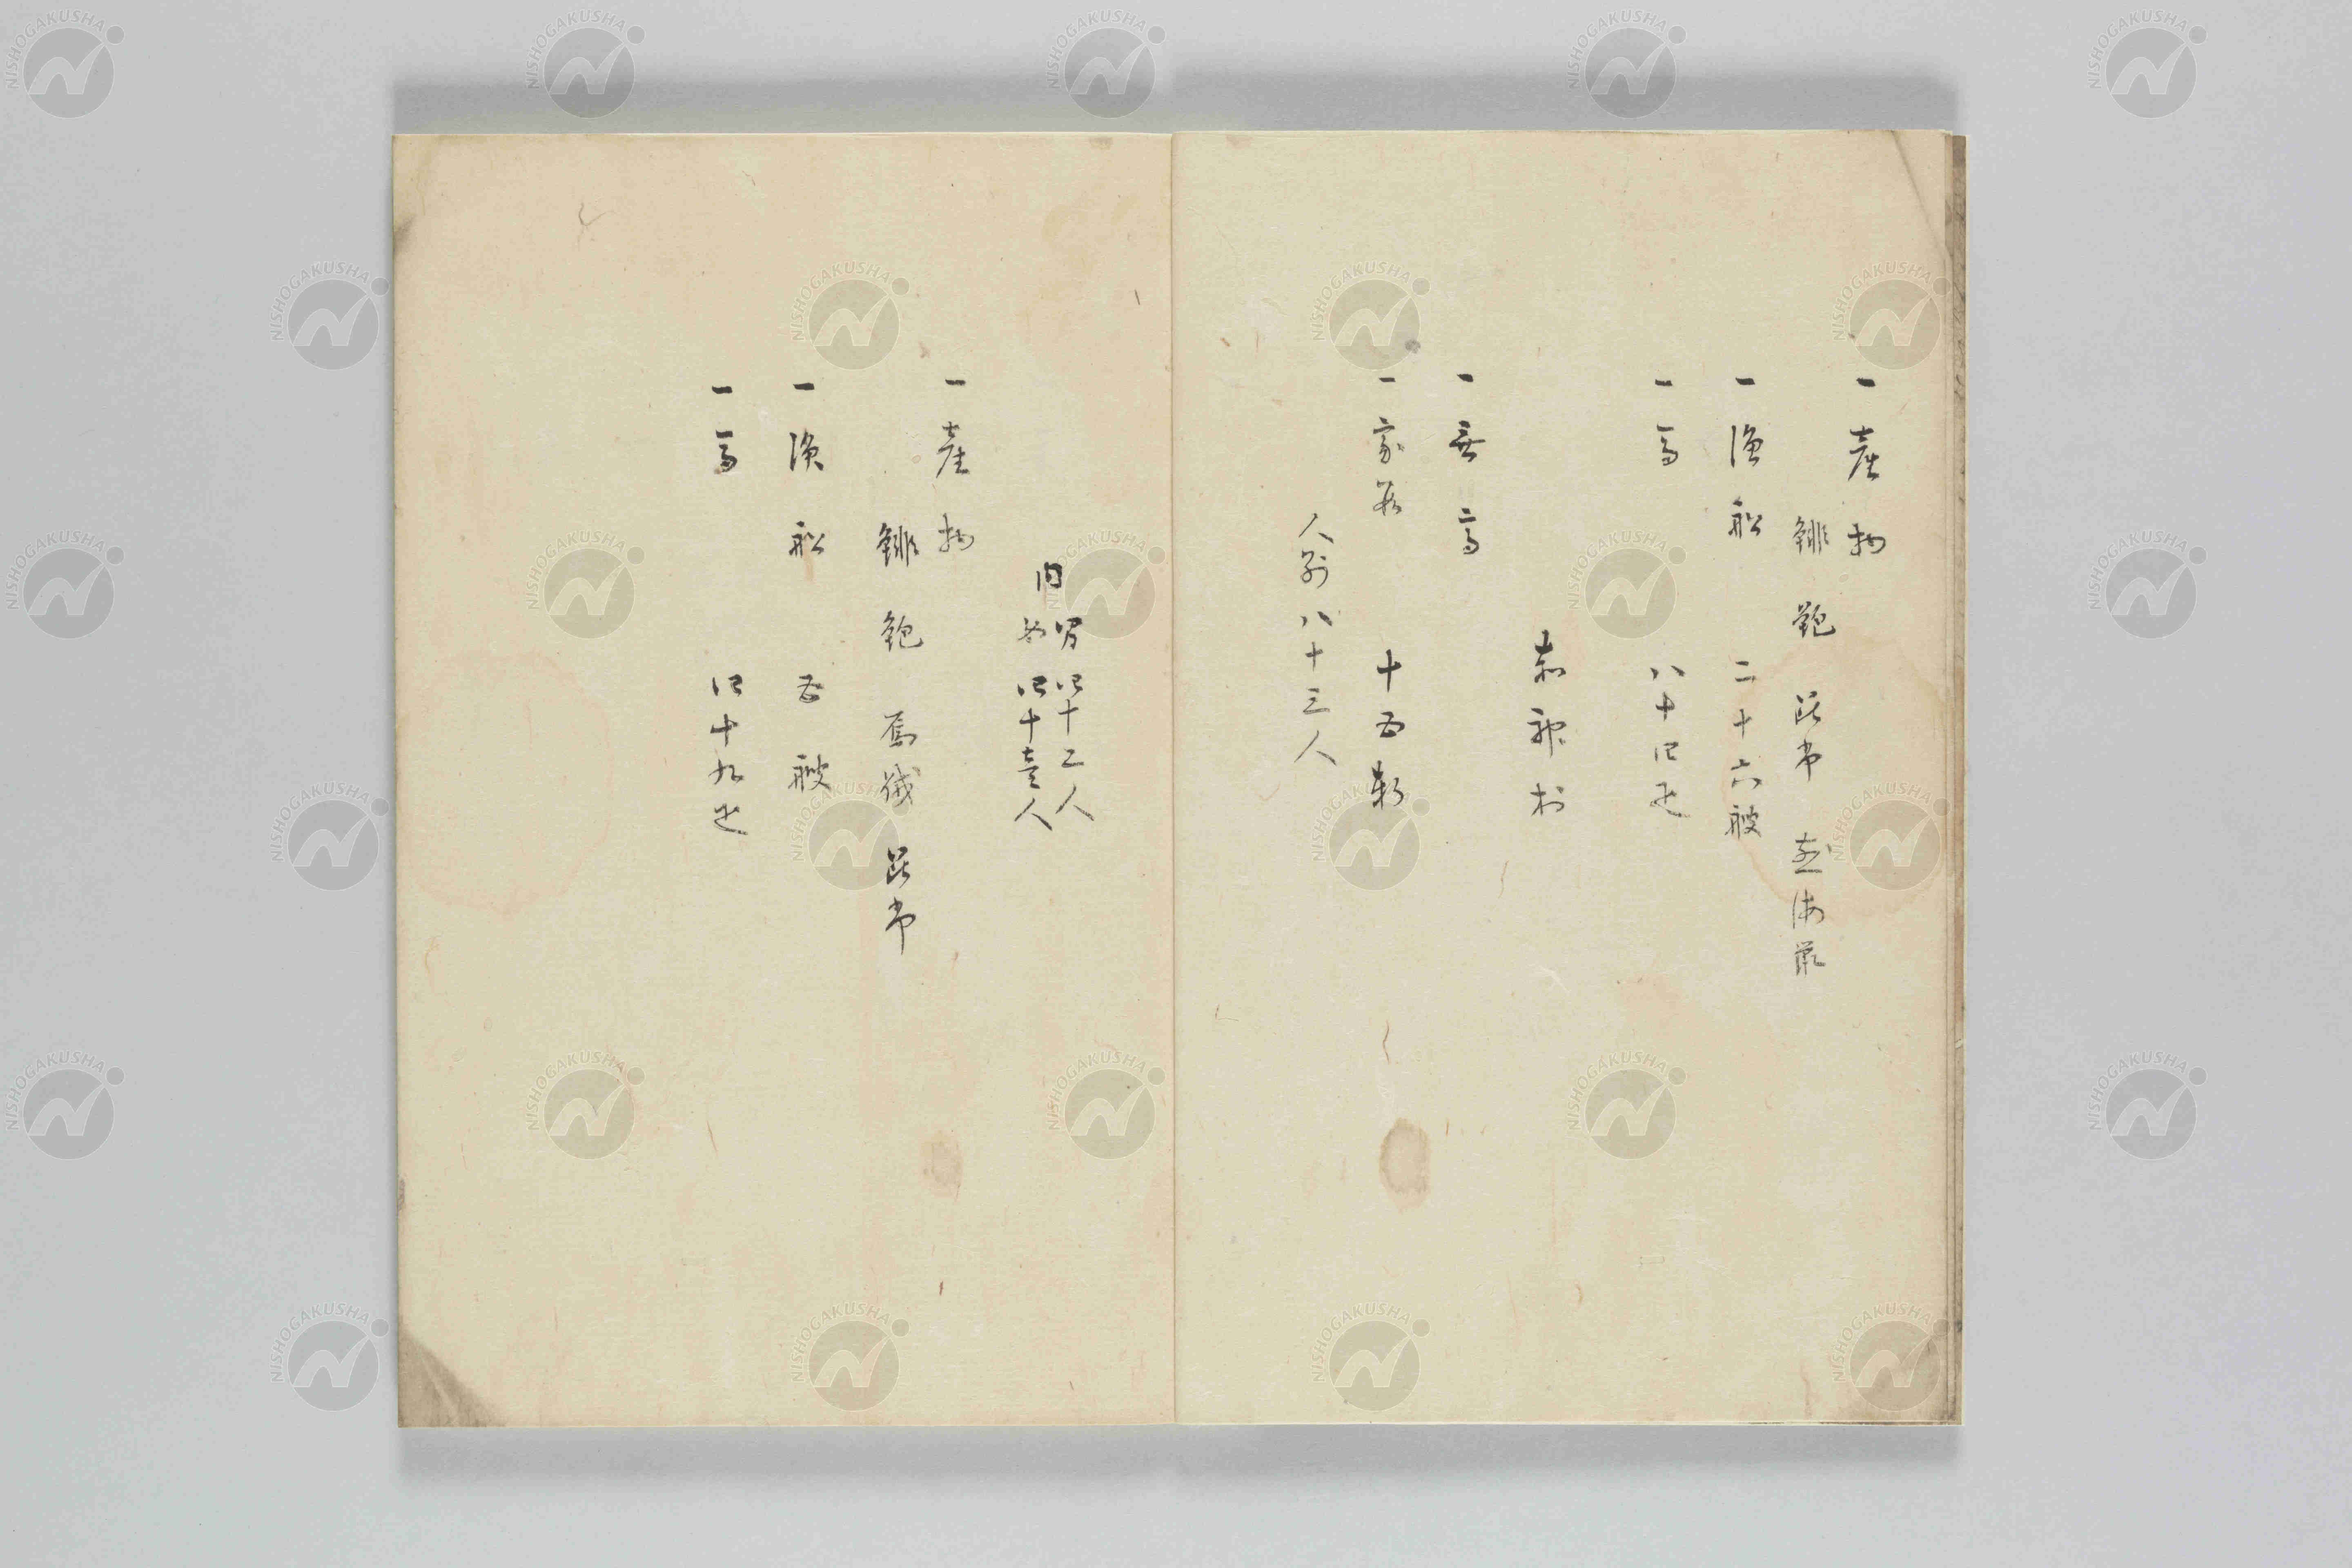 一産物
鯡 鮑 昆布 煎海鼠
一漁船 二十六艘
一馬 八十四疋
赤神村
一無高
一家数 十五軒
人別八十三人
内 男四十二人
女四十壱人
一産物
鯡 鮑 烏賊 昆布
一漁船 五艘
一馬 四十九疋